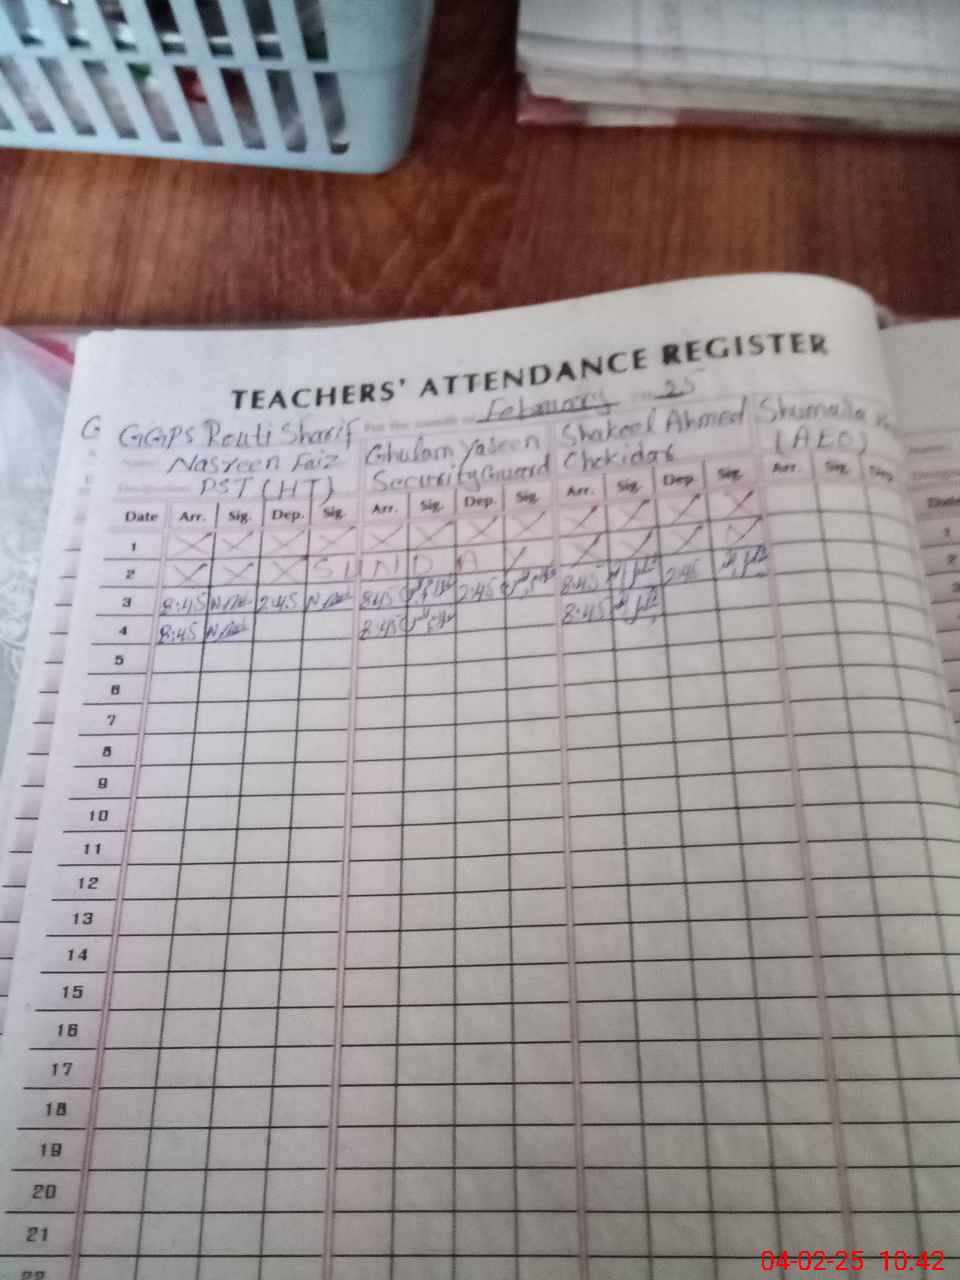 TEACHERS' ATTENDANCE REGISTER
For the month of February 25
G GGPS Routi Sharif
Nasreen Faiz Ghulam Yaseen Shakeel Ahmed Shumaila
PST (HT) Security Guard Chokidar (AEO)
Date Arr. Sig. Dep. Sig. Arr. Sig. Dep. Sig. Arr. Sig. Dep. Sig. Arr. Sig. Dep.
1 X X X X X X X X X X X X
2 X X X S U N D A Y X X X X
3 8:45 2:45 8:45 2:45 8:45 2:45
4 8:45 8:45 8:45
5
6
7
8
9
10
11
12
13
14
15
16
17
18
19
20
21
22
Date
1
2
3
04-02-25 10:42